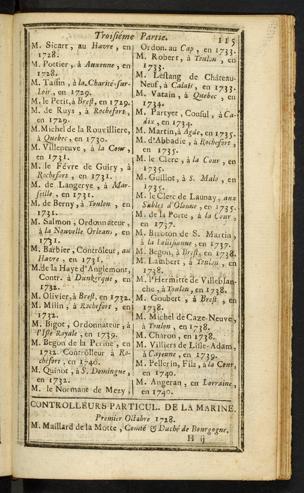 Troisiéme Partie. 115
M. Sicart, au Havre, en
1728.
M. Pottier, à Auxonne, en
1728.
M. Tassin, à la Charité-sur-
Loir, en 1729.
M. le Petit, à Brest, en 1729.
M. de Ruys, à Rochefort,
en 1729.
M. Michel de la Rouvilliere,
à Quebec, en 1730.
M. Villeneuve, à la Cour,
en 1731.
M. le Févre de Guiry, à
Rochefort, en 1731.
M. de Langerye, à Mar-
seille, en 1731.
M. de Berny, à Toulon, en
1731.
M. Salmon, Ordonnateur,
à la Nouvelle Orleans, en
1731.
M. Barbier, Contrôleur, au
Havre, en 1731.
M. de la Haye d'Anglemont,
Contr. à Dunkerque, en
1732.
M. Olivier, à Brest, en 1732.
M. Milin, à Rochefort, en
1732.
M. Bigot, Ordonnateur, à
l'Isle Royale, en 1739.
M. Begon de la Perine, en
1712. Contrôlleur à Ro-
chefort, en 1740.
M. Quinot, à S. Domingue,
en 1732.
M. le Normant de Mezy,
Ordon. au Cap, en 1733.
M. Robert, à Toulon, en
1733.
M. Lestang de Château-
Neuf, à Calais, en 1733.
M. Vatain, à Quebec, en
1734.
M. Partyet, Consul, à Ca-
dix, en 1734.
M. Martin, à Agde, en 1735.
M. d'Abbadie, à Rochefort,
en 1735.
M. le Clerc, à la Cour, en
1735.
M. Guillot, à S. Malo, en
1735.
M. le Clerc de Launay, aux
Sables d'Olonne, en 1735.
M. de la Porte, à la Cour,
en 1737.
M. Bizoton de S. Martin,
à la Louisianne, en 1737.
M. Begon, à Brest, en 1738.
M. Lambert, à Toulon, en
1738.
M. l'Hermitte de Villeblan-
che, à Toulon, en 1738.
M. Goubert, à Brest, en
1738.
M. Michel de Caze-Neuve,
à Toulon, en 1738.
M. Charon, en 1738.
M. Villiers de Lisle-Adam,
à Cayenne, en 1739.
M. Pellerin, Fils, à la Cour,
en 1740.
M. Angeran, en Lorraine,
en 1740.
CONTROLLEURS PARTICUL. DE LA MARINE.
Premier Octobre 1728.
M. Maillard de la Motte, Comté & Duché de Bourgogne.
H ij